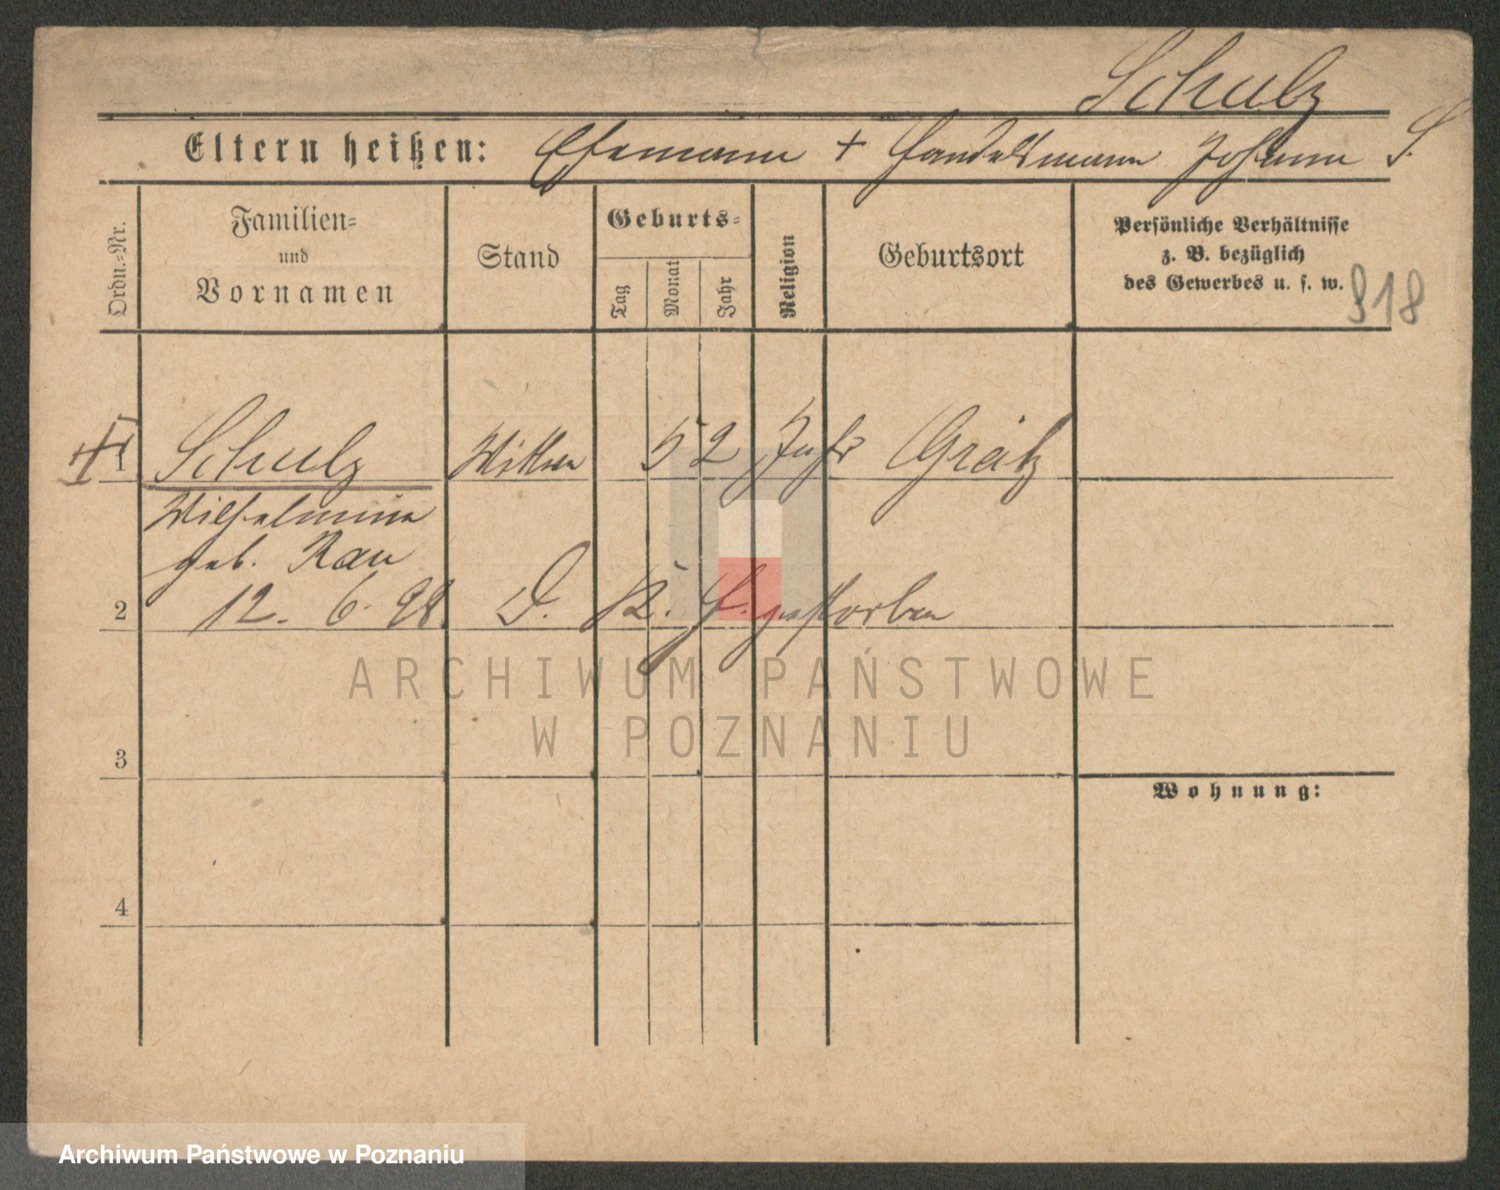 Schulz
Eltern heißen: Ehemann + Handelsmann Johann S.
Ordn.-Nr.
Familien-
und
Vornamen
Stand
Geburts-
Tag
Monat
Jahr
Religion
Geburtsort
Persönliche Verhältnisse
z. B. bezüglich
des Gewerbes u. s. w.
918
Schulz 52 Jahr Grätz
Wilhelmine
geb. Rau
2 12. 6. 98. gestorben
3
Wohnung:
4
ARCHIWUM PAŃSTWOWE
W POZNANIU
Archiwum Państwowe w Poznaniu